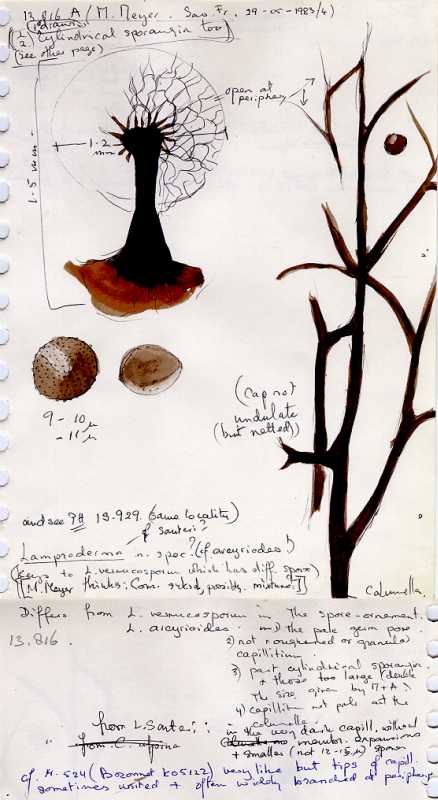 13.816 A / M. Meyer. Sav. Fr. 29-05-1983/4)
[2/2 cylindrical sporangia too]
(see other page)
open at
periphery
1.2
mm
1.5 mm
9 - 10 µ
- 11 µ
(Cap not
undulate
(but netted))
and see P# 13.929. (same locality)
of sauteri?
Lamproderma n. spec? (cf arcyriodes!)
(keys to L. verrucosporum which has diff. spore)
[M. Meyer thinks: Com. sived, possibly mixture?]
Columella
Differs from L. verrucosporum in the spore-ornament.
L. arcyrioides in 1) the pale germ pore.
13.816.
2) not roughened or granular
capillitium.
3) part cylindrical sporangia
+ those too large (double
the size given by M+A)
4) capillitium not pale at the
columella
" from L. Sauteri: in the very dark capill. without
" from C. alpina membr. expansions
+ smaller (not 12-15 µ) spores
cf. M-524 (Bozonnet K05122) very like but tips of capill.
sometimes united + often widely branched at periphery